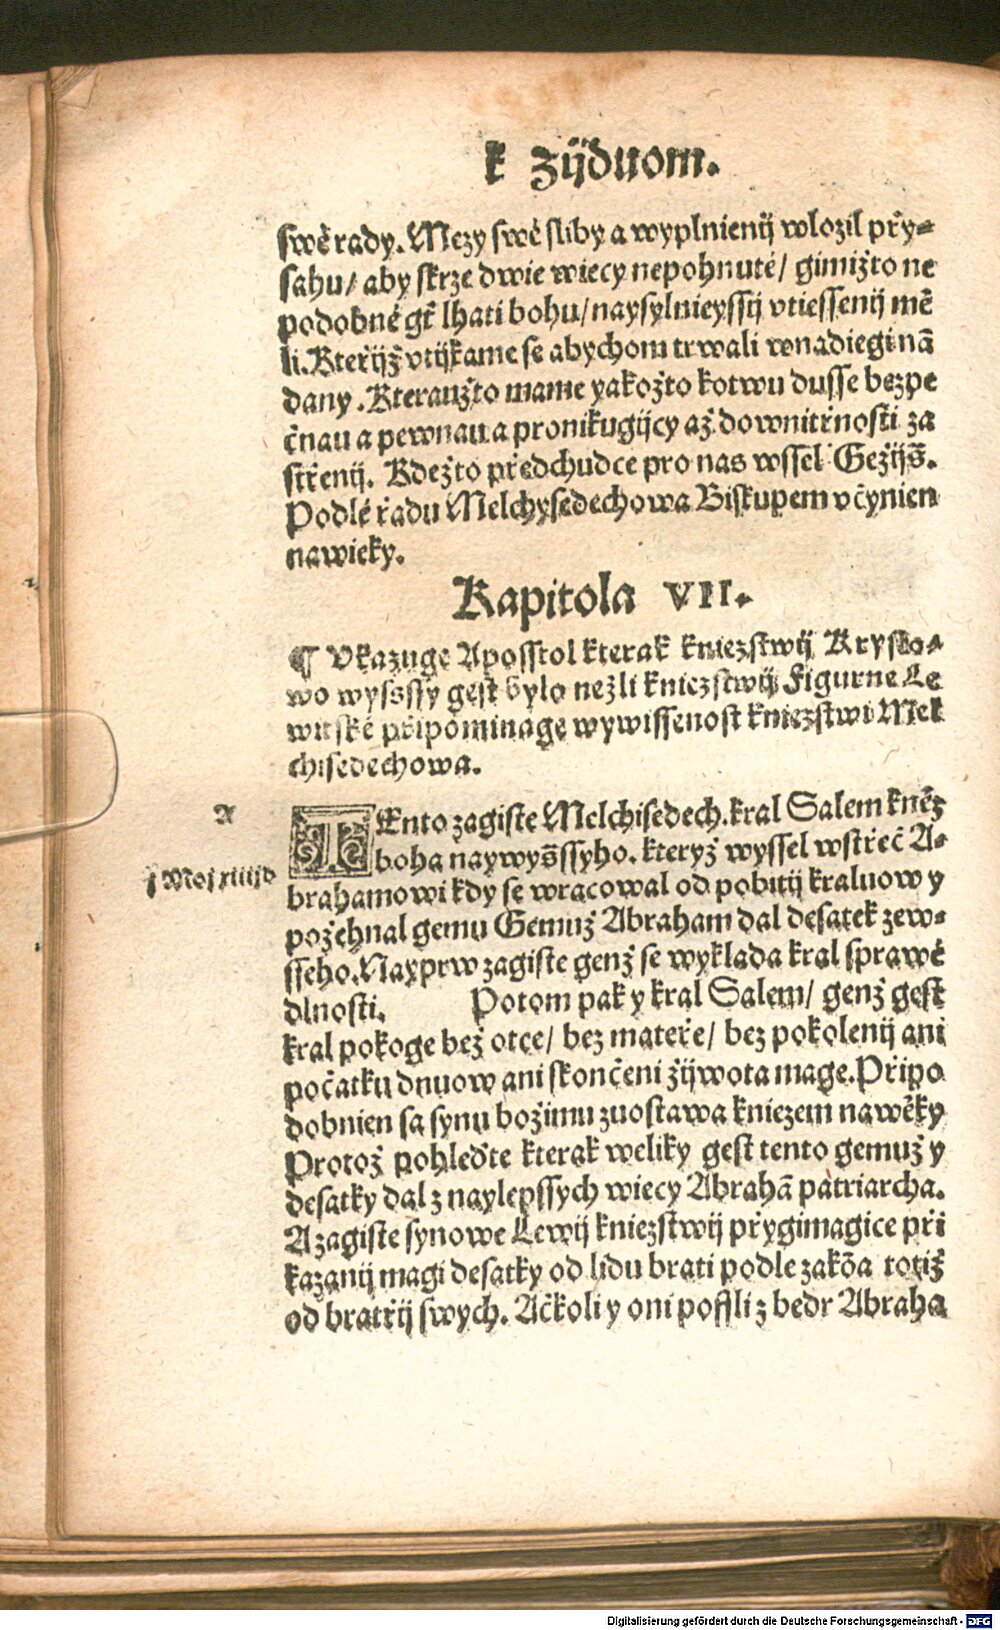 k Zijduom.
swé rady. Mezy swé sliby a wyplnienij wlozil přy⸗
sahu/ aby skrze dwie wiecy nepohnuté/ gimižto ne
podobné gt̃ lhati bohu/ naysylnieyssij vtiessenij mē
li. Kteřijž vtijkame se abychom trwali wnadiegi nā
dany. Kteraužto mame yakožto kotwu dusse bezpe
čnau a pewnau a pronikugijcy až downitřnosti za
střenij. Kdežto předchudce pro nas wssel Gežijs̃.
Podlé řadu Melchysedechowa Biskupem včynien
nawieky.
Kapitola VII.
¶ Vkazuge Aposstol kterak kniezstwij Krysto⸗
wo wyssssy gest bylo nežli kniezstwij Figurne Le
witské připominage wywissenost kniezstwi Mel
chisedechowa.
A
TEnto zagiste Melchisedech. kral Salem knēz
boha naywysssyho. kteryž wyssel wstřeč A⸗
j Moj xiiij d
brahamowi kdy se wracowal od pobitij kraluow y
požehnal gemu Gemuž Abraham dal desatek zew⸗
sseho. Nayprw zagiste genž se wyklada kral sprawé
dlnosti. Potom pak y kral Salem/ genž gest
kral pokoge bež otce/ bez mateře/ bez pokolenij ani
počatku dnuow ani skončeni žijwota mage. Připo
dobnien sa synu božimu zuostawa kniezem nawēky
Protož pohleďte kterak weliky gest tento gemuž y
desatky dal z naylepssych wiecy Abrahā patriarcha.
A zagiste synowe Lewij kniezstwij přygimagice při
kazanij magi desatky od lidu brati podle zakōa totiž
od bratřij swych. Ačkoli y oni possli z bedr Abraha
Digitalisierung gefördert durch die Deutsche Forschungsgemeinschaft - DFG